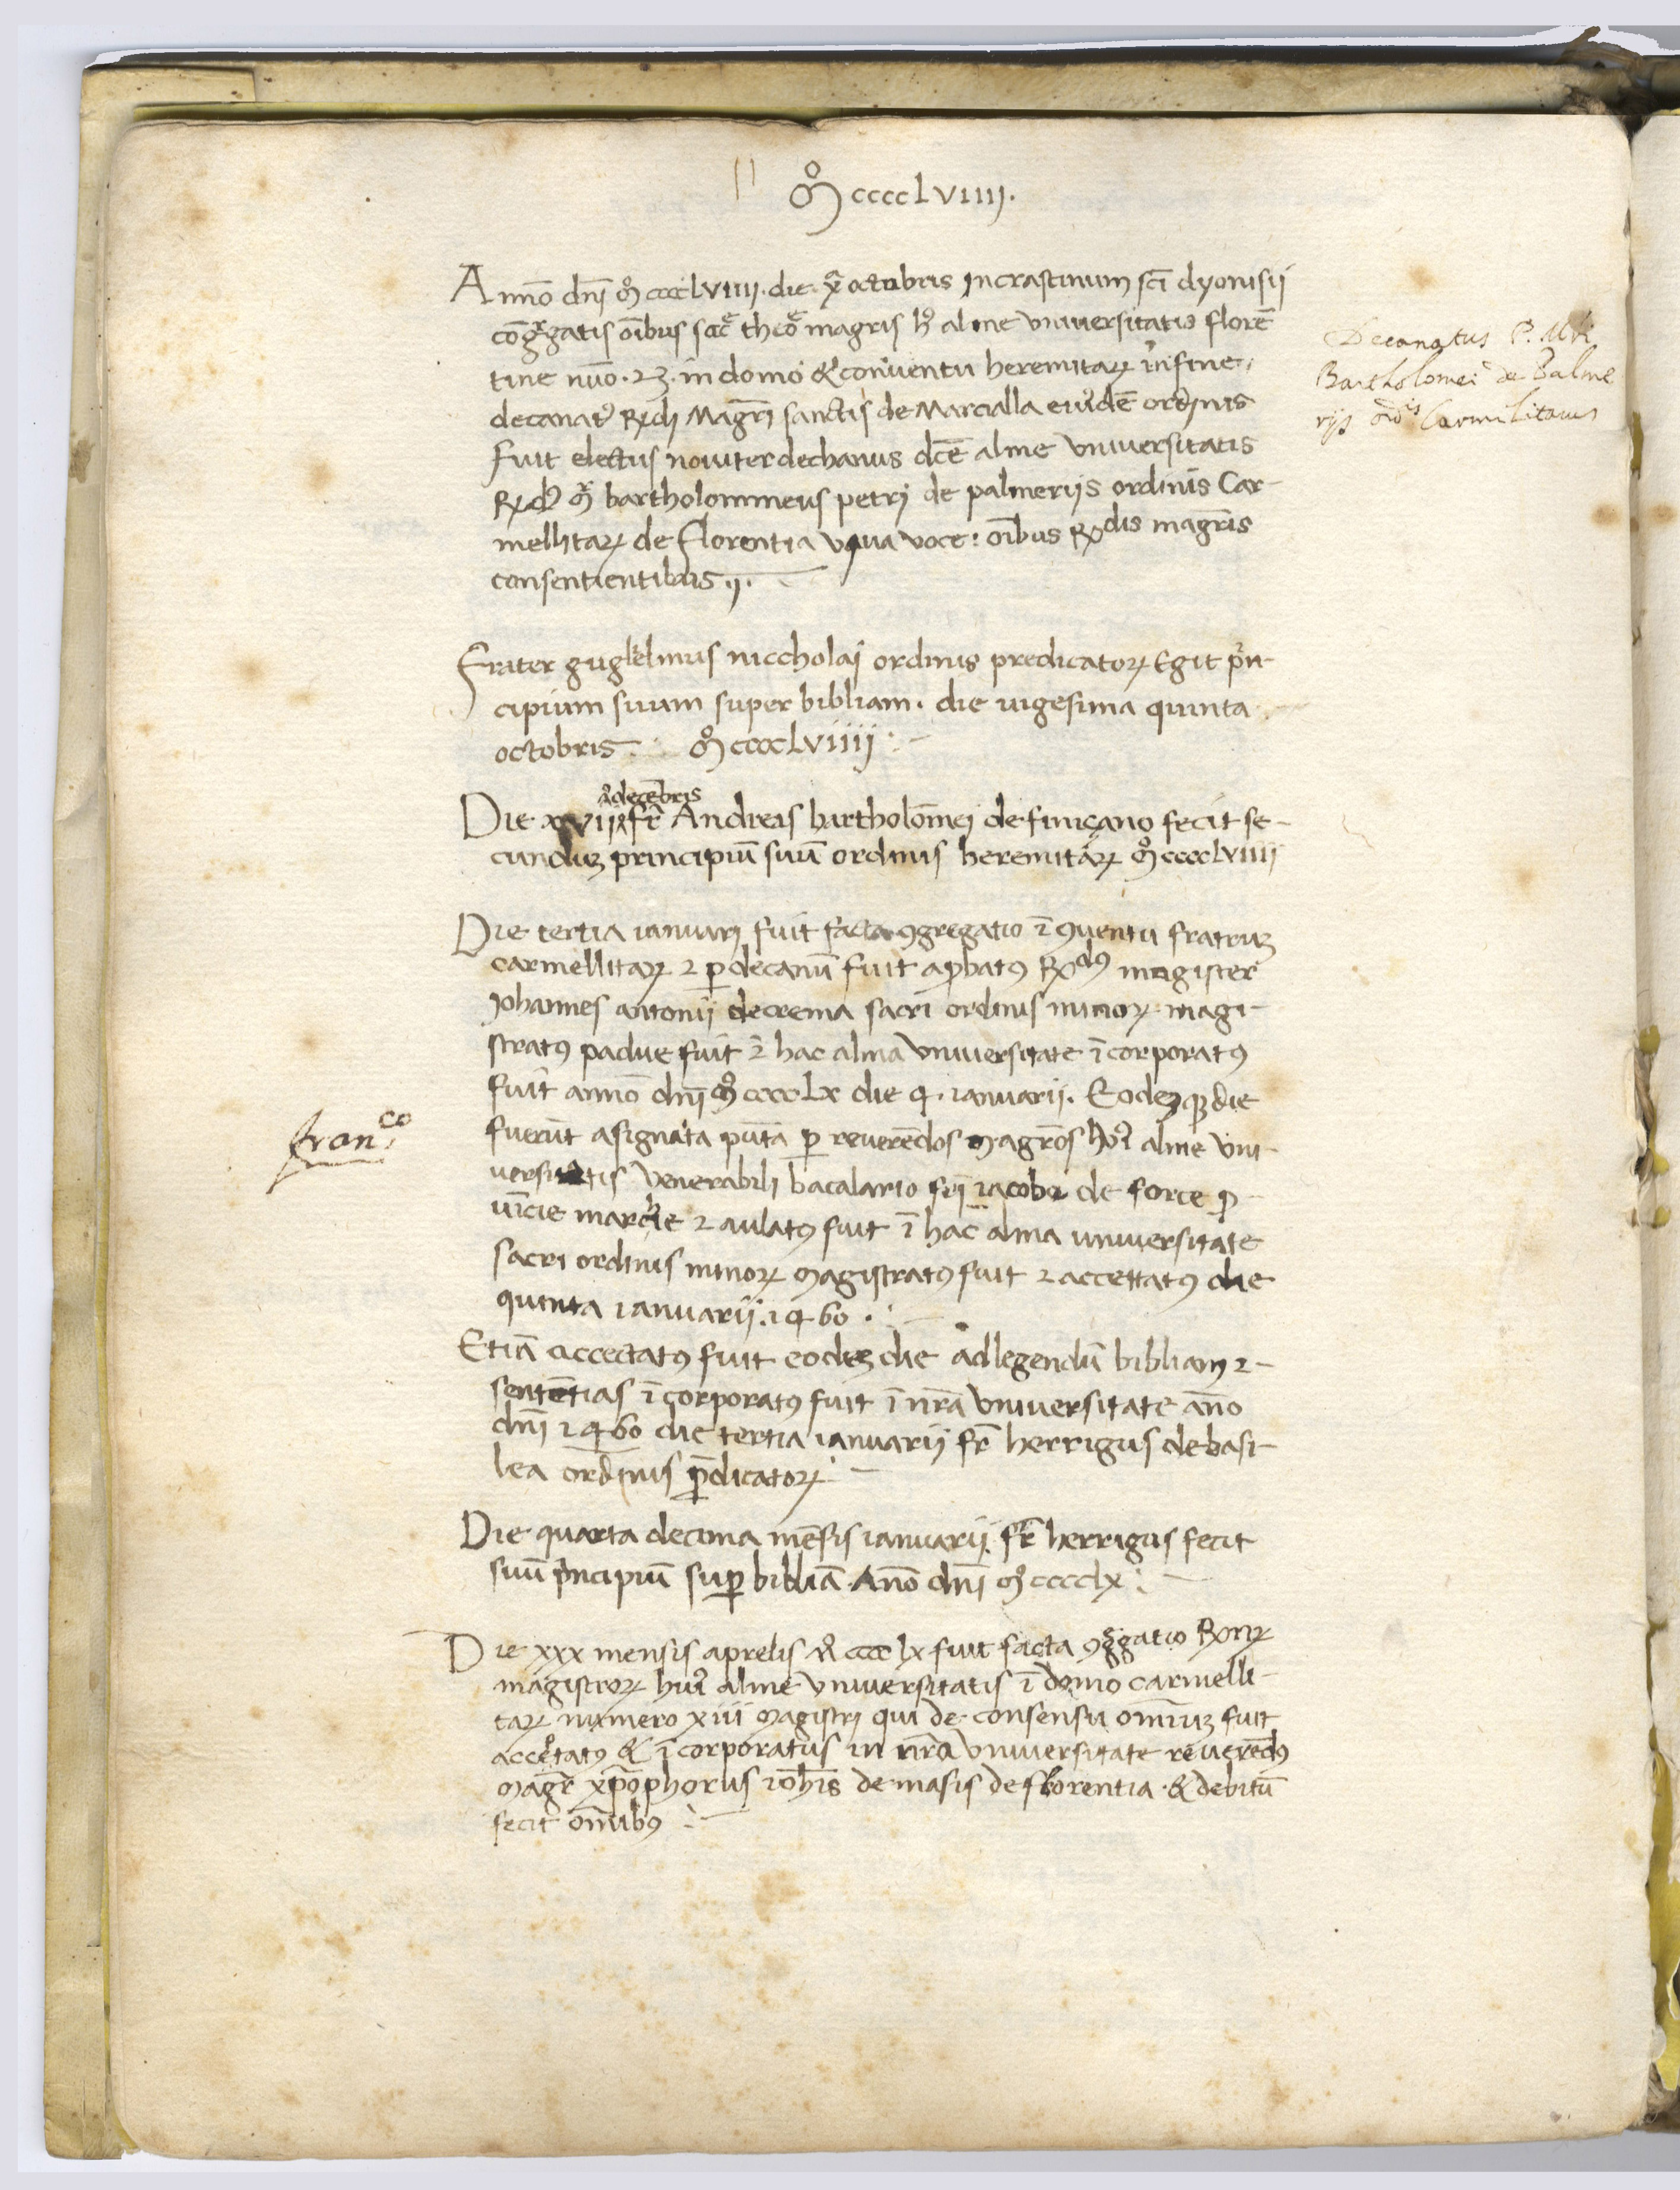 Mº ccccLVIIII.
Anno dñi Mº ccccLVIIII. die xª octobris in crastinum scī dyonisii
cōgͣgatis oībus sacͤ theoͤ magr̄is hꝰ alme universitatis florē
tine nūo. 23. in domo & conventu heremitaꝝ in fine
decanatꝰ Rdi Magr̄i sanctis de Marcialla eiusdē ordinis
fuit electus noviter dechanus dc̄e alme universitatis
Rdꝰ Mͬ bartholommeus petrj de palmerijs ordinis Car-
mellitaꝝ de Florentia viva voce: oībus Rdis magr̄is
consentientibus
Decanatus P. Mri
Bartholomei de Palme
rijs ordis Carmelitarum
Frater guglielmus niccholaj ordinis predicatoꝝ Egit prin-
cipium suum super bibliam. die vigesima quinta
octobris Mº ccccLviiij
decēbris
Die xviij fr̄ Andreas bartholōmej de finiçano fecit se-
cunduꝫ principiū suū ordinis heremitaꝝ Mº ccccLVIIII
Die tertia ianuarj fuit facta ꝯgregatio ī ꝯventu fratruꝫ
carmellitaꝝ ⁊ ꝑ decanū fuit aꝓbatꝰ Rdꝰ magister
Johannes antonij de crema sacri ordinis minoꝝ magi-
stratꝰ padue fuit ī hac alma universitate īcorporatꝰ
fuit anno dñi Mº ccccLx die 4. ianuarii. Eodeꝫqꝫ die
franco
fuerūt asignata pūta ꝑ reverēdos magr̄os huiꝰ alme uni
versitatis venerabili bacalario fr̄i iacobo de force ꝓ
vīcie marchie ⁊ aulatꝰ fuit ī hac alma universitate
sacri ordinis minoꝝ magistratꝰ fuit ⁊ accettatꝰ die
quinta ianuarii. 1460.
Etiā accectatꝰ fuit eodeꝫ die ad legendū bibliam ⁊
sentētias īcorporatꝰ fuit ī nr̄a universitate an̄o
dñi 1460 die tertia ianuarij fr̄ herrigus de basi-
lea ordinis p̄dicatoꝝ
Die quarta decima mēsis ianuarij fr̄ herrigus fecit
suū principiū suꝑ bibliā Anō dñi Mº cccclx
Die xxx mensis aprelis Mº cccc lx fuit facta ꝯgͣgatio Rnꝝ
magistroꝝ huiꝰ alme universitatis ī domo carmelli-
taꝝ numero xiii magistrj qui de consensu omniuꝫ fuit
acceptatꝰ & īcorporatus in nr̄a universitate reverēdꝰ
magr̄ xp̄ophorus ioh̄is de masis de florentia & debitū
fecit omnibꝰ